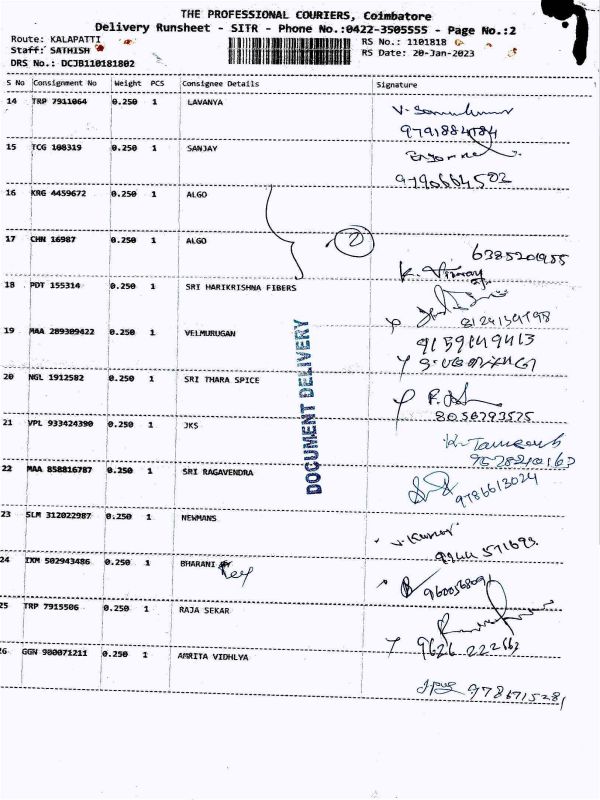 THE PROFESSIONAL COURIERS, Coimbatore
Delivery Runsheet - SITR - Phone No.:0422-3505555 - Page No.:2
Route: KALAPATTI
RS No.: 1101818
Staff: SATHISH
RS Date: 20-Jan-2023
DRS No.: DCJB110181802
S No Consignment No Weight PCS Consignee Details Signature
14 TRP 7911064 0.250 1 LAVANYA
15 TCG 108319 0.250 1 SANJAY
16 KRG 4459672 0.250 1 ALGO
17 CHN 16987 0.250 1 ALGO 2
6385201955
K.
18 PDT 155314 0.250 1 SRI HARIKRISHNA FIBERS
8124134198
19 MAA 289309422 0.250 1 VELMURUGAN
9159149413
20 NGL 1912582 0.250 1 SRI THARA SPICE
8056793575
21 VPL 933424390 0.250 1 JKS
22 MAA 858816787 0.250 1 SRI RAGAVENDRA
9786613024
23 SLM 312022987 0.250 1 NEWMANS
V. Kumar
9944 571693
24 IXM 502943486 0.250 1 BHARANI
25 TRP 7915506 0.250 1 RAJA SEKAR
9626 222663
26 GGN 900071211 0.250 1 AMRITA VIDHLYA
9786715281
DOCUMENT DELIVERY